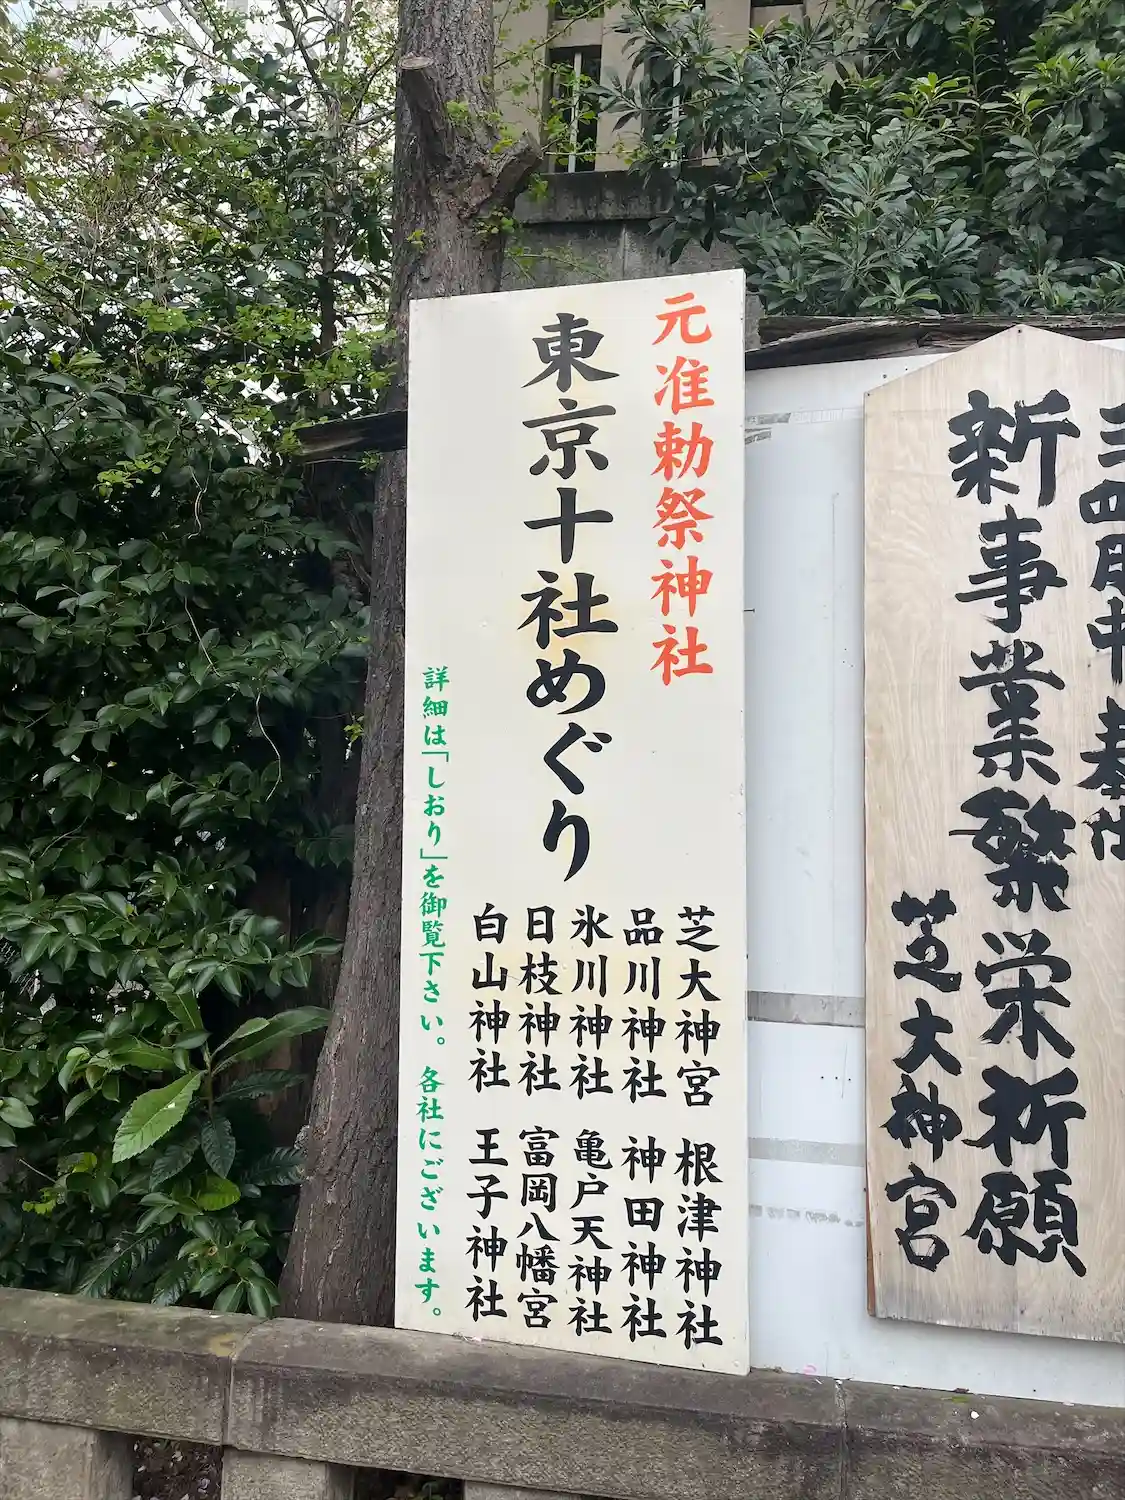 新事業繁栄祈願
芝大神宮
元准勅祭神社
東京十社めぐり
芝大神宮
品川神社
氷川神社
日枝神社
白山神社
根津神社
神田神社
亀戸天神社
富岡八幡宮
王子神社
詳細は「しおり」を御覧下さい。各社にございます。